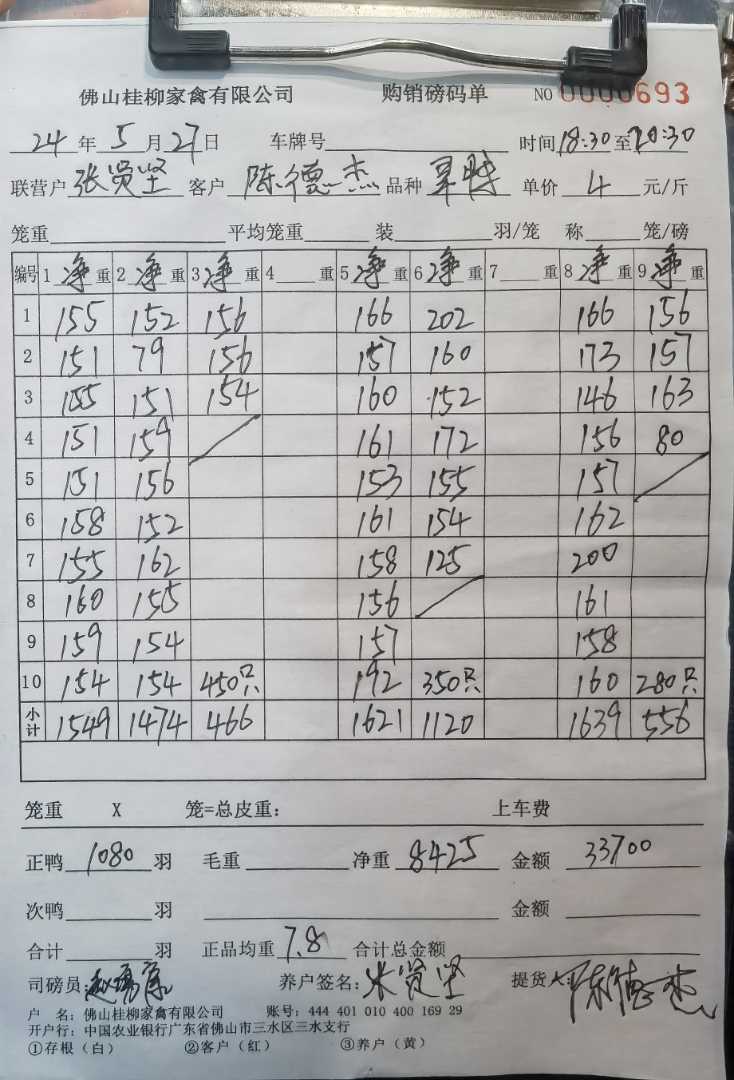 佛山桂柳家禽有限公司 购销磅码单 NO 0000693
24 年 5 月 27 日 车牌号 时间 18:30 至 20:30
联营户 张贤坚 客户 陈德杰 品种 单价 4 元/斤
笼重 平均笼重 装 羽/笼 称 笼/磅
编号 1 净 重 2 净 重 3 净 重 4 重 5 净 重 6 净 重 7 重 8 净 重 9 净 重
1 155 152 156 166 202 166 156
2 151 79 156 157 160 173 157
3 155 151 154 160 152 146 163
4 151 159 161 172 156 80
5 151 156 153 155 157
6 158 152 161 154 162
7 155 162 158 125 200
8 160 155 156 161
9 159 154 157 158
10 154 154 450只 192 350只 160 280只
小计 1549 1474 466 1621 1120 1639 556
笼重 X 笼=总皮重: 上车费
正鸭 1080 羽 毛重 净重 8425 金额 33700
次鸭 羽 金额
合计 羽 正品均重 7.8 合计总金额
司磅员: 养户签名: 张贤坚 提货人: 陈德杰
户 名: 佛山桂柳家禽有限公司 账号: 444 401 010 400 169 29
开户行: 中国农业银行广东省佛山市三水区三水支行
①存根（白） ②客户（红） ③养户（黄）